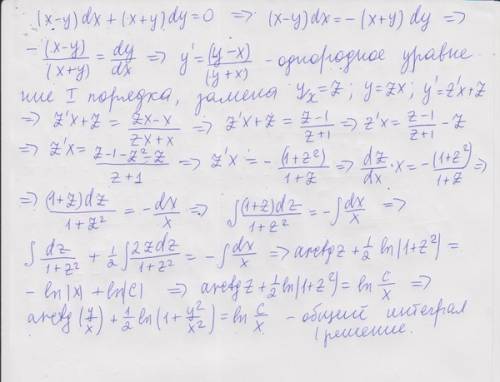 (x-y)dx + (x+y)dy = 0 ⇒ (x-y)dx = -(x+y)dy ⇒
-(x-y)/(x+y) = dy/dx ⇒ y' = (y-x)/(y+x) - однородное уравне
ние I порядка, замена y/x = z; y = zx; y' = z'x + z
⇒ z'x + z = (zx-x)/(zx+x) ⇒ z'x + z = (z-1)/(z+1) ⇒ z'x = (z-1)/(z+1) - z
⇒ z'x = (z-1-z²-z)/(z+1) ⇒ z'x = -(1+z²)/(1+z) ⇒ dz/dx · x = -(1+z²)/(1+z) ⇒
⇒ (1+z)dz/(1+z²) = -dx/x ⇒ ∫(1+z)dz/(1+z²) = -∫dx/x ⇒
∫dz/(1+z²) + 1/2 ∫2zdz/(1+z²) = -∫dx/x ⇒ arctg z + 1/2 ln|1+z²| =
-ln|x| + ln|c| ⇒ arctg z + 1/2 ln|1+z²| = ln c/x ⇒
arctg(y/x) + 1/2 ln(1 + y²/x²) = ln c/x - общий интеграл
решение.